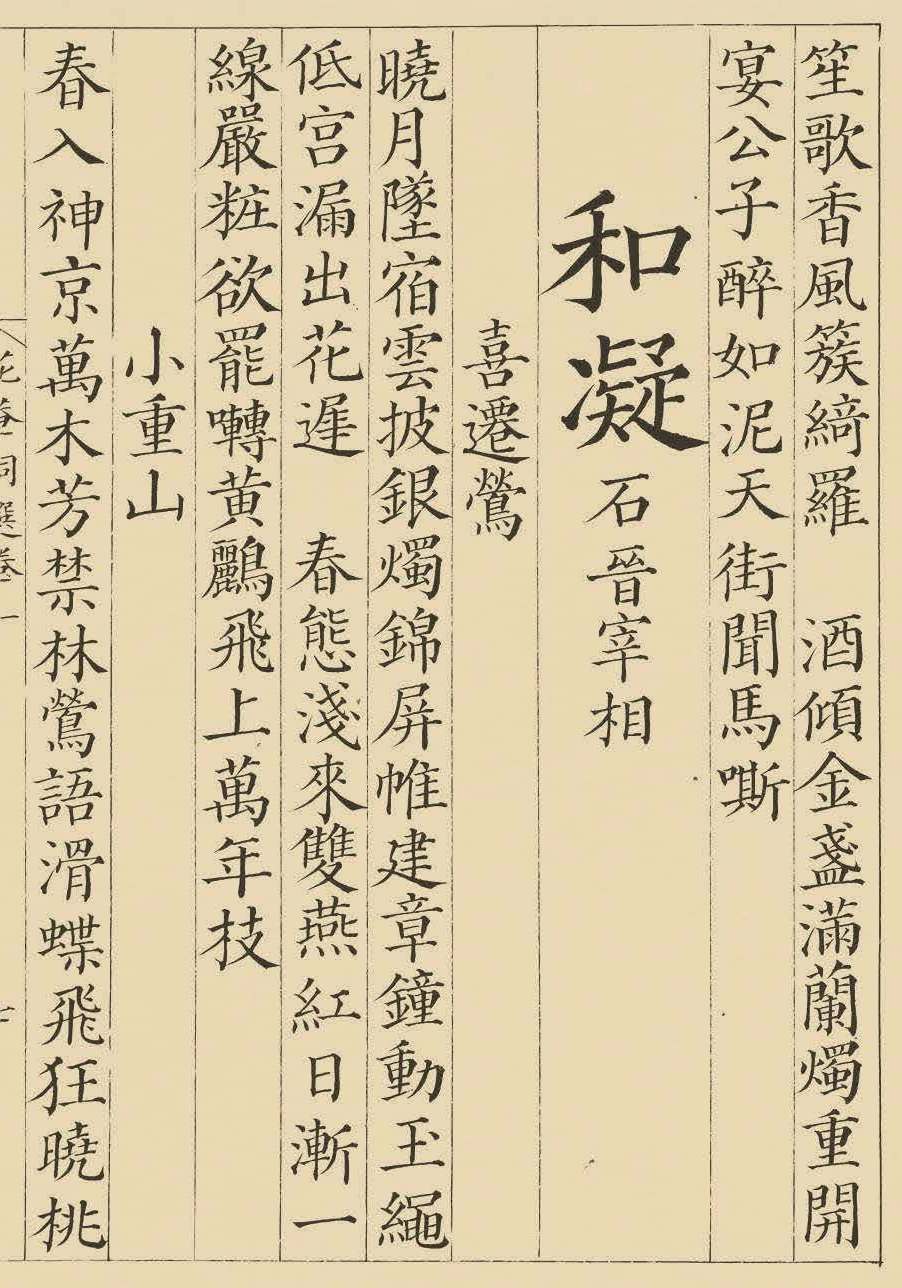 笙歌香風簇綺羅　酒傾金盞滿蘭燭重開
宴公子醉如泥天街聞馬嘶
和凝石晉宰相
喜遷鶯
曉月墜宿雲披銀燭錦屏帷建章鐘動玉繩
低宮漏出花遲　春態淺來雙燕紅日漸一
線嚴粧欲罷囀黃鸝飛上萬年技
小重山
春入神京萬木芳禁林鶯語滑蝶飛狂曉桃